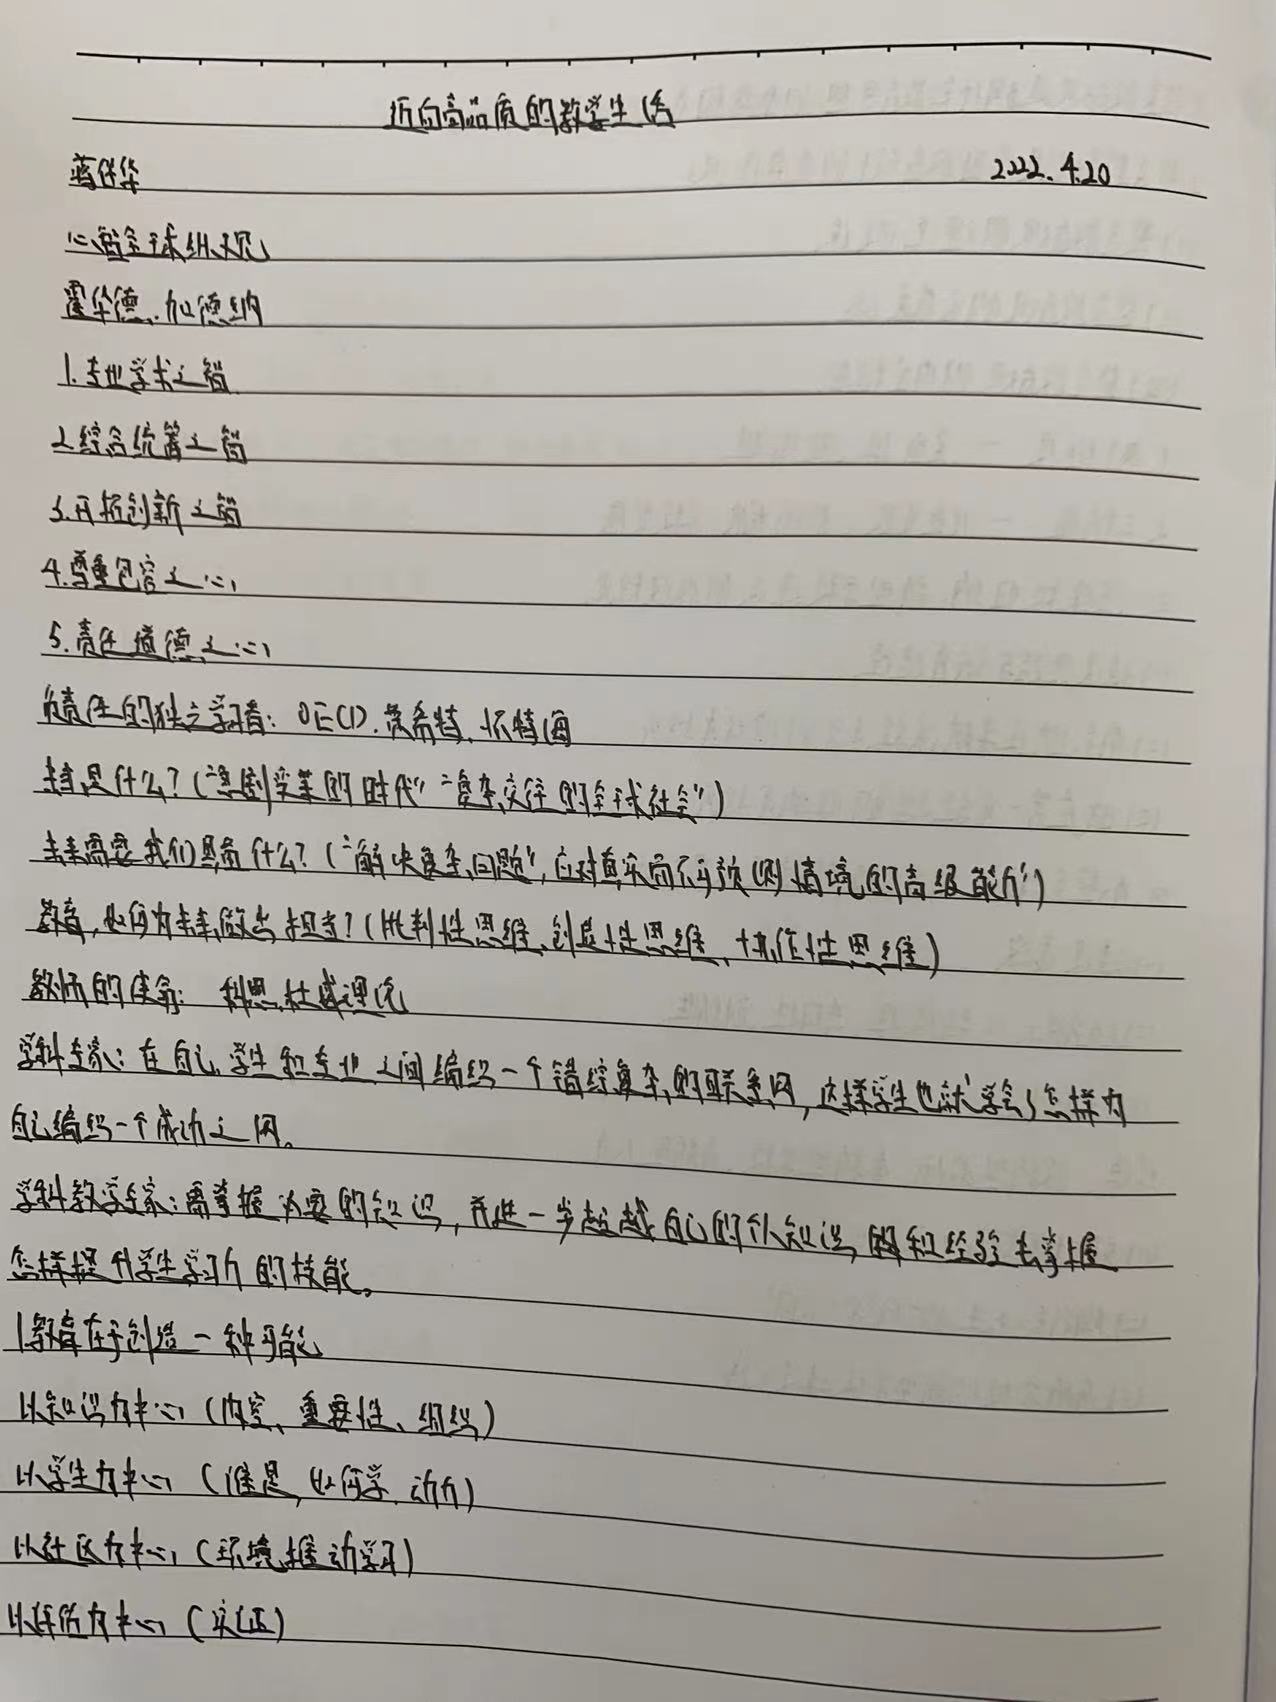 迈向高品质的教学生活
蒋保华 2022.4.20
心智全球纵观
霍华德.加德纳
1.专业学术之智
2.综合统筹之智
3.开拓创新之智
4.尊重包容之心
5.责任道德之心
负责任的独立学习者：OECD.莱希特.怀特海
未来是什么？（“急剧变革的时代”“复杂交往的全球社会”）
未来需要我们具备什么？（“解决复杂问题”，应对真实而不可预测情境的高级能力”）
教育，如何为未来做出担当？（批判性思维、创造性思维、协作性思维）
教师的使命： 科恩.杜威理论
学科专家：在自己.学生和专业之间编织一个错综复杂的联系网，这样学生也就学会了怎样为
自己编织一个成功之网。
学科教学专家：需掌握必要的知识，并进一步超越自己的个人知识，和经验去掌握
怎样提升学生学习力的技能。
1.教育在于创造一种可能
以知识为中心（内容、重要性、组织）
以学生为中心（谁是，如何学.动力）
以社区为中心（环境推动学习）
以评估为中心（实证）